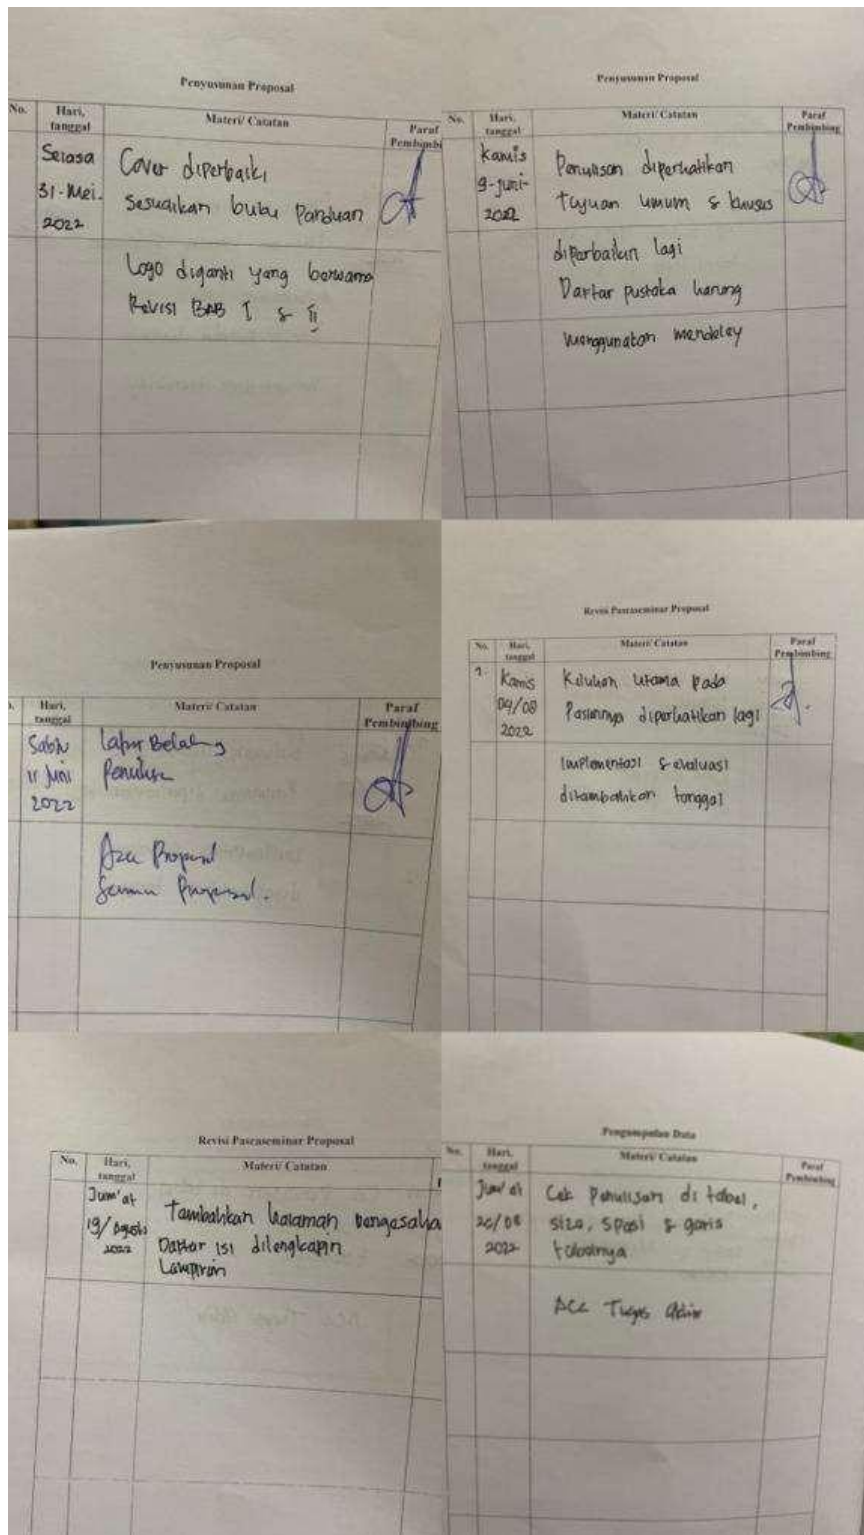 Penyusunan Proposal
No. Hari, tanggal Materi/ Catatan Paraf Pembimbi
Selasa
31-Mei-
2022
Cover diperbaiki
Sesuaikan buku Panduan
Logo diganti yang berwarna
Revisi BAB I & II
Penyusunan Proposal
No. Hari, tanggal Materi/ Catatan Paraf Pembimbing
Kamis
9-Juni-
2022
Penulisan diperhatikan
Tujuan umum & khusus
diperbaikin lagi
Daftar pustaka harung
menggunakan mendeley
Penyusunan Proposal
Hari, tanggal Materi/ Catatan Paraf Pembimbing
Sabtu
11 Juni
2022
Latar Belakang
Penulisan
Acc Proposal
Proposal.
Revisi Pascaseminar Proposal
No. Hari, tanggal Materi/ Catatan Paraf Pembimbing
1. Kamis
04/08
2022
Keluhan utama pada
Pasiennya diperhatikan lagi
Implementasi & evaluasi
ditambahkan tanggal
Revisi Pascaseminar Proposal
No. Hari, tanggal Materi/ Catatan
Jum'at
19/Agusts
2022
Tambahkan halaman pengesaha
Daftar isi dilengkapin
Lampiran
Pengumpulan Data
No. Hari, tanggal Materi/ Catatan Paraf Pembimbing
Jum'at
26/08
2022
Cek Penulisan di tabel,
size, spasi & garis
tabelnya
ACC Tugas Akhir